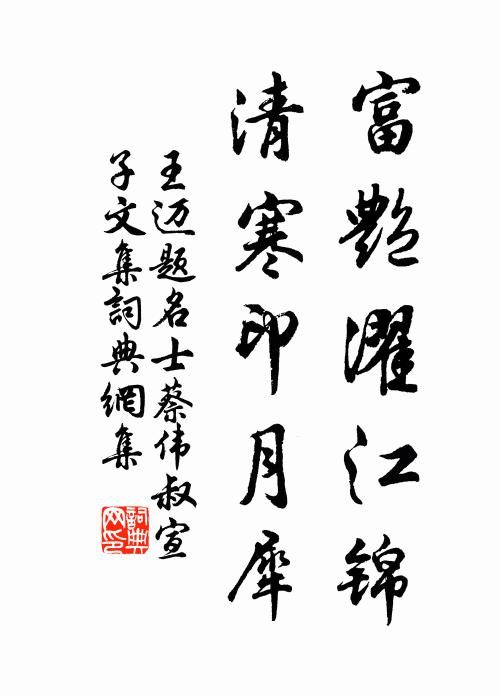 富艷濯江錦
清寒印月犀
王迈题名士蔡伟叔宣
子文集詞典網集
詞典網印